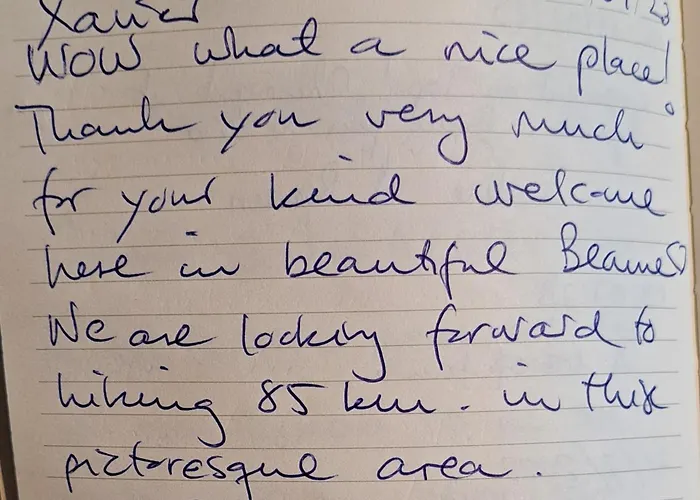 Xavier
Wow what a nice place!
Thank you very much
for your kind welcome
here in beautiful Beaune
We are looking forward to
hiking 85 km. in this
picturesque area.